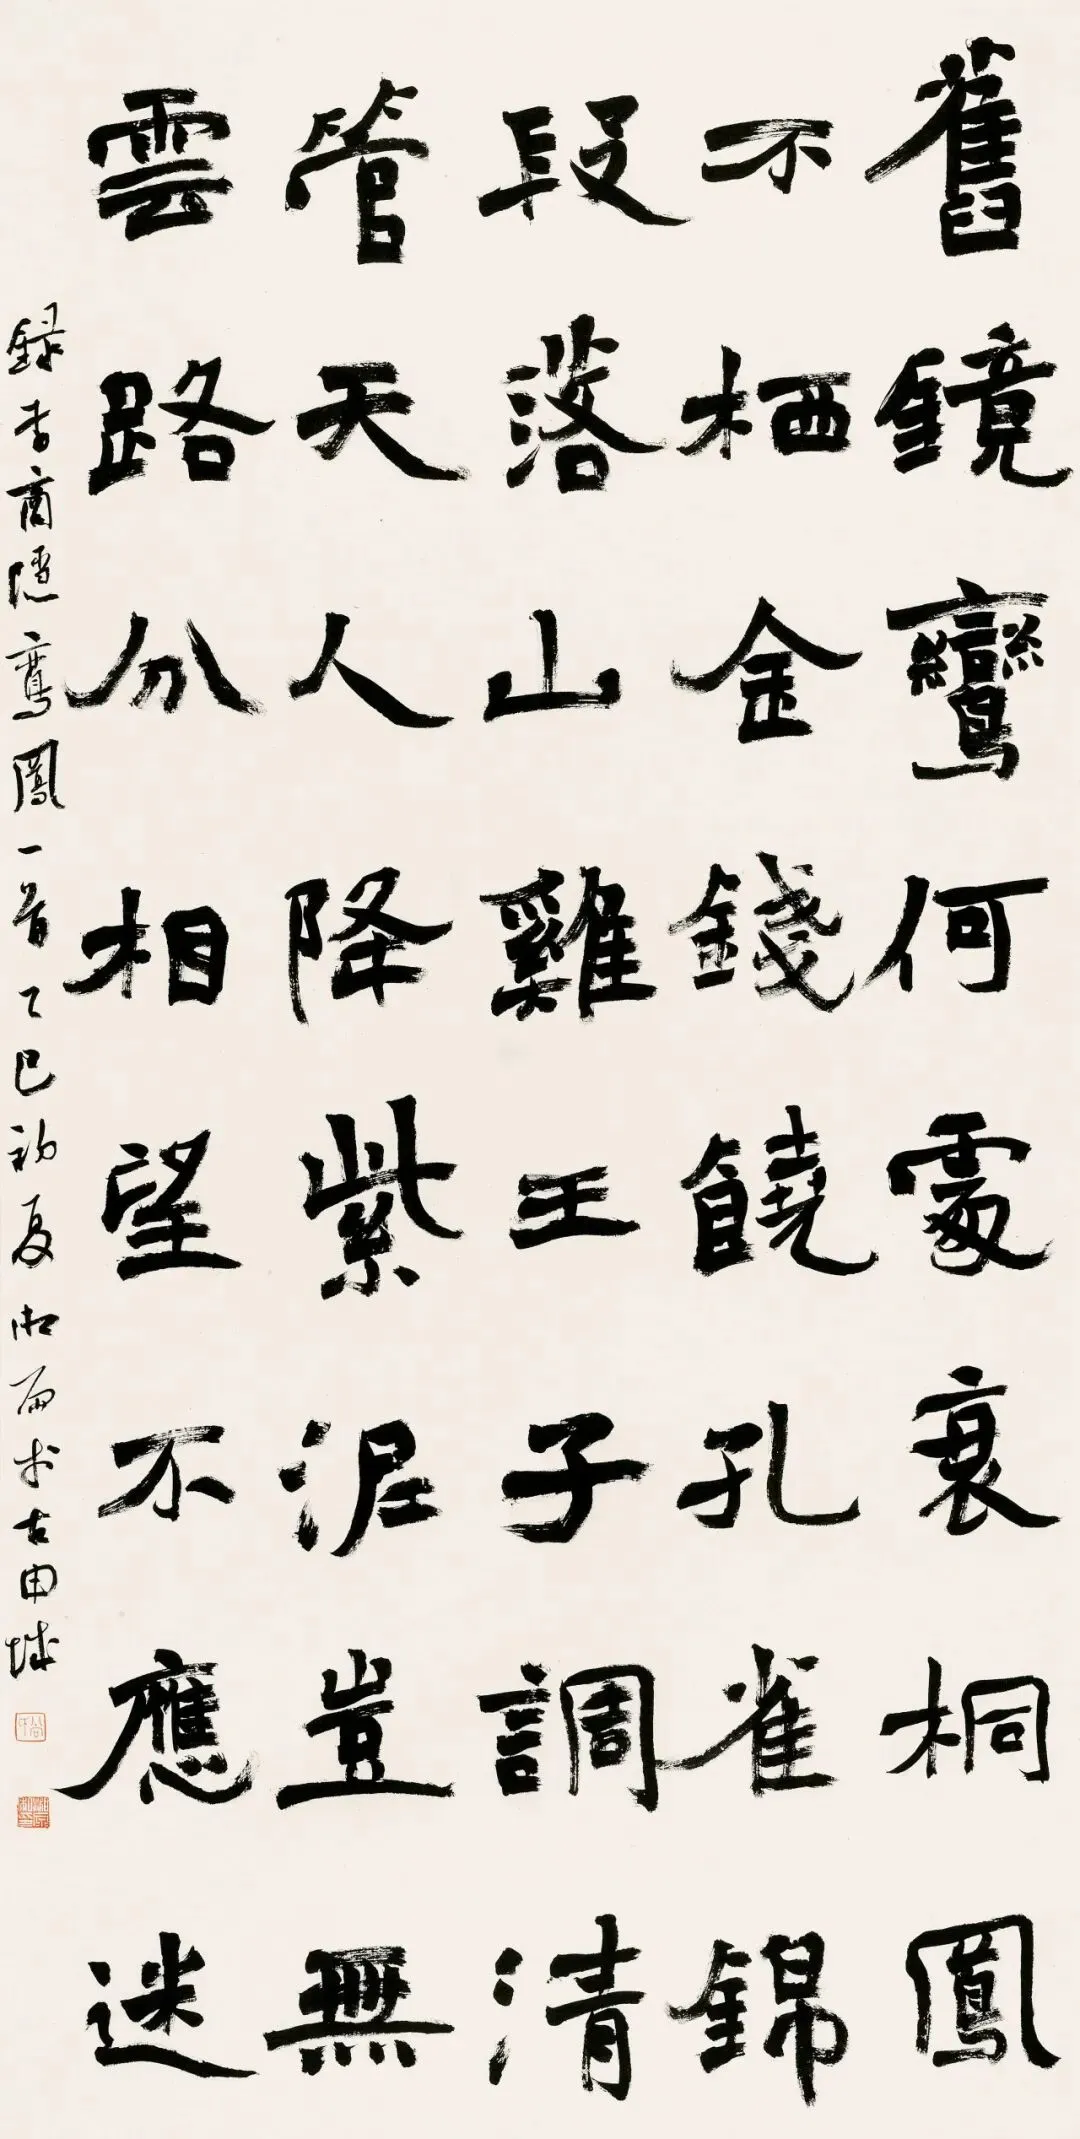 舊鏡鸞何處衰桐鳳
不栖金錢饒孔雀錦
段落山雞王子調清
管天人降紫泥豈無
雲路分相望不應迷
録李商隱鸞鳳一首乙巳初夏湘